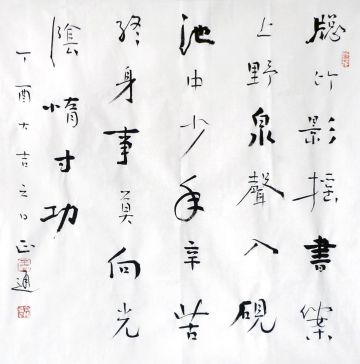 牕竹影摇書案
上野泉聲入硯
池中少年辛苦
終身事莫向光
陰惰寸功
丁酉大吉之日正